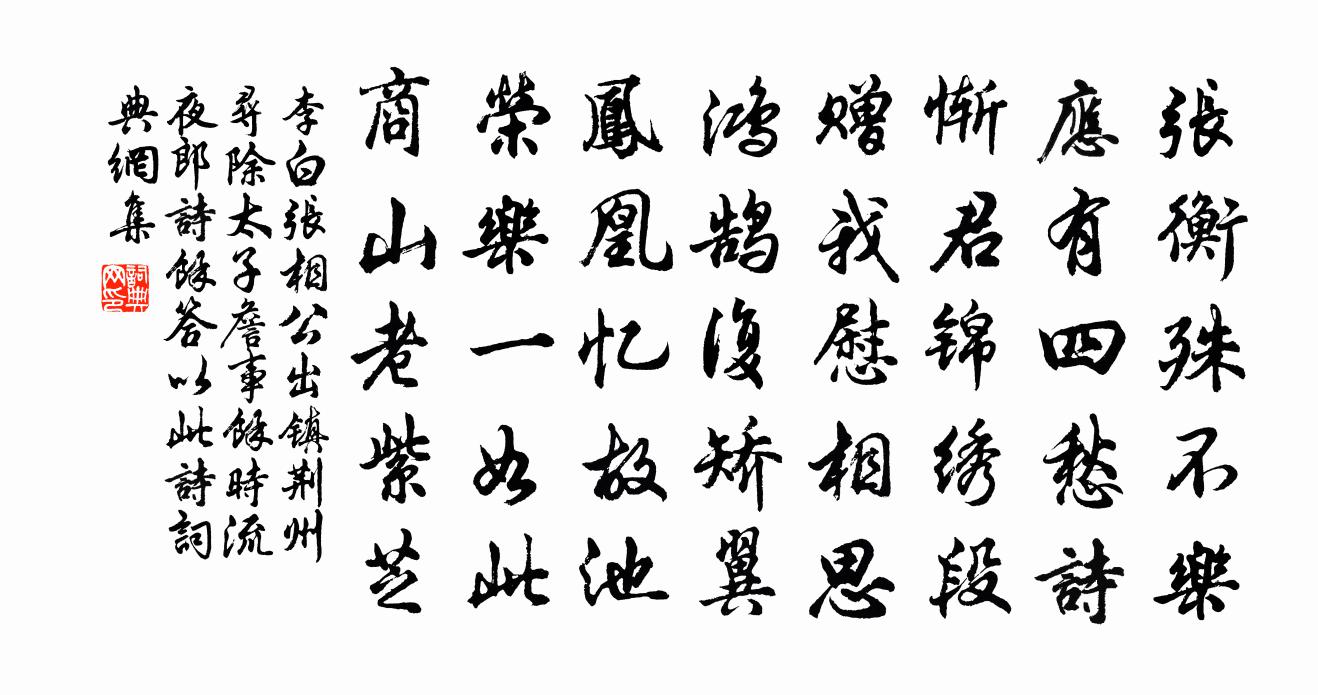 張衡殊不樂
應有四愁詩
惭君锦绣段
赠我慰相思
鸿鹄復矫翼
鳳凰忆故池
榮樂一如此
商山老紫芝
李白張相公出镇荆州
尋除太子詹事餘時流
夜郎詩餘答以此詩詞
典網集
詞典网印